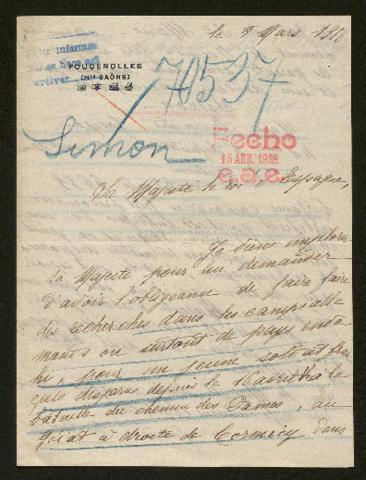 le 8 Mars 1918
FOUGEROLLES
(Hte SAÔNE)
70537
Simon
Fecho
15 ABR. 1918
e.a.e.
Sa Majesté le roi d'Espagne,
Je viens implorer
sa Majesté pour lui demander
d'avoir l'obligeance de faire faire
des recherches dans les camps alle
mands ou surtout de pays enva
hi, pour un jeune soldat fran
çais disparu depuis le 16 avril à la
bataille du chemin des Dames, au
à droite de Cormicy dans